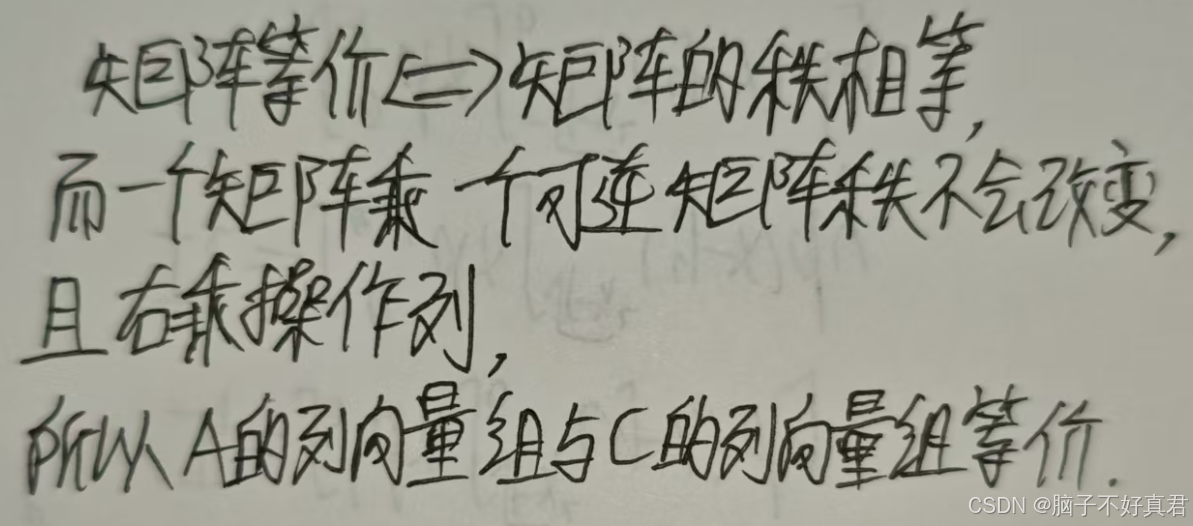 矩阵等价<=>矩阵的秩相等,
而一个矩阵乘一个可逆矩阵秩不会改变,
且右乘操作列,
所以A的列向量组与C的列向量组等价.
CSDN @脑子不好真君